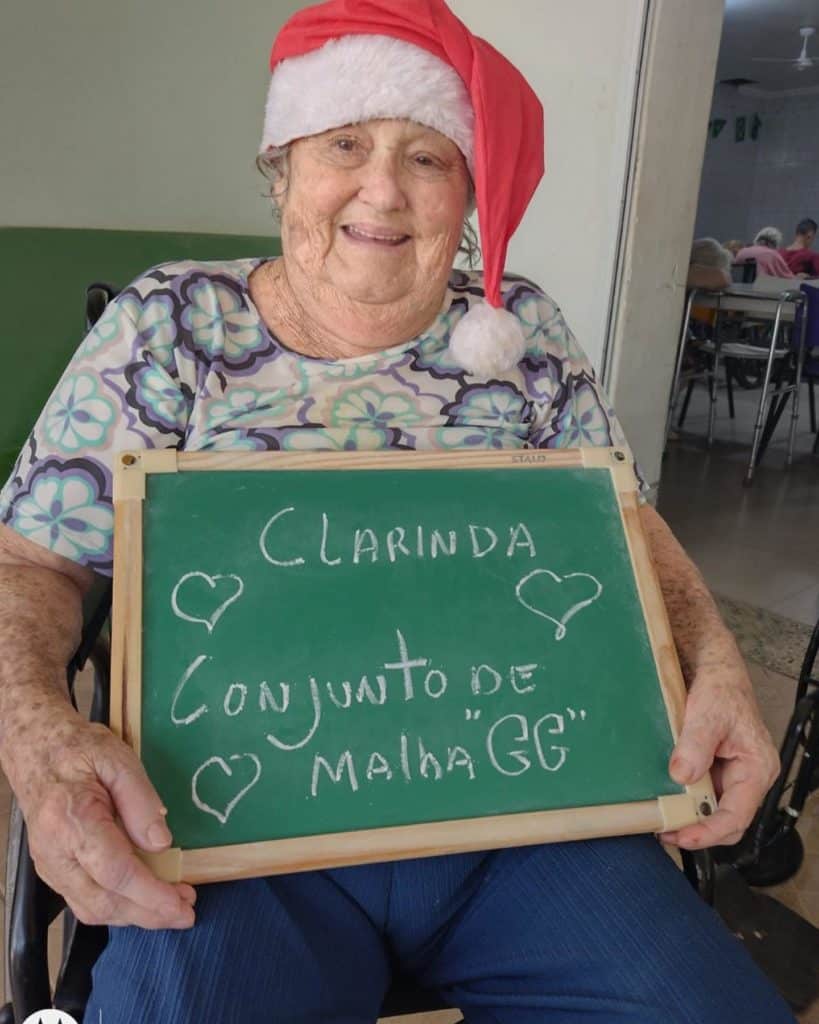 STALO
CLARINDA
CONJUNTO DE
MALHA "GG"